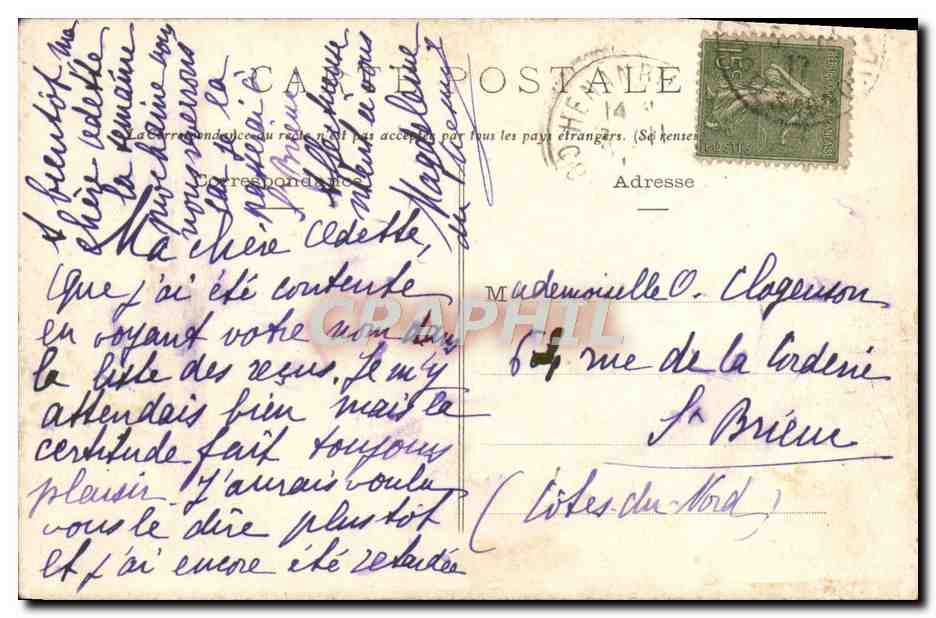 CARTE POSTALE
La Correspondance au recto n'est pas acceptée par tous les pays étrangers. (Se rensei
Correspondance
Adresse
Ma chère Odette,
Que j'ai été contente
en voyant votre nom dans
la liste des reçus. Je m'y
attendais bien mais la
certitude fait toujours
plaisir. J'aurais voulu
vous le dire plus tôt
et j'ai encore été retardée
A bientôt ma
chère Odette
la semaine
prochaine nous
nous reverrons
la
passerai à
Brieuc
Affectueuse
ment à vous
Magdeleine
du
Mademoiselle O. Clogenson
67 rue de la Corderie
St Brieuc
(Côtes-du-Nord)
15c
CRAPHIL